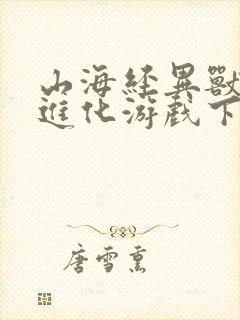 山海经異獸
進化游戲下
唐雪熏